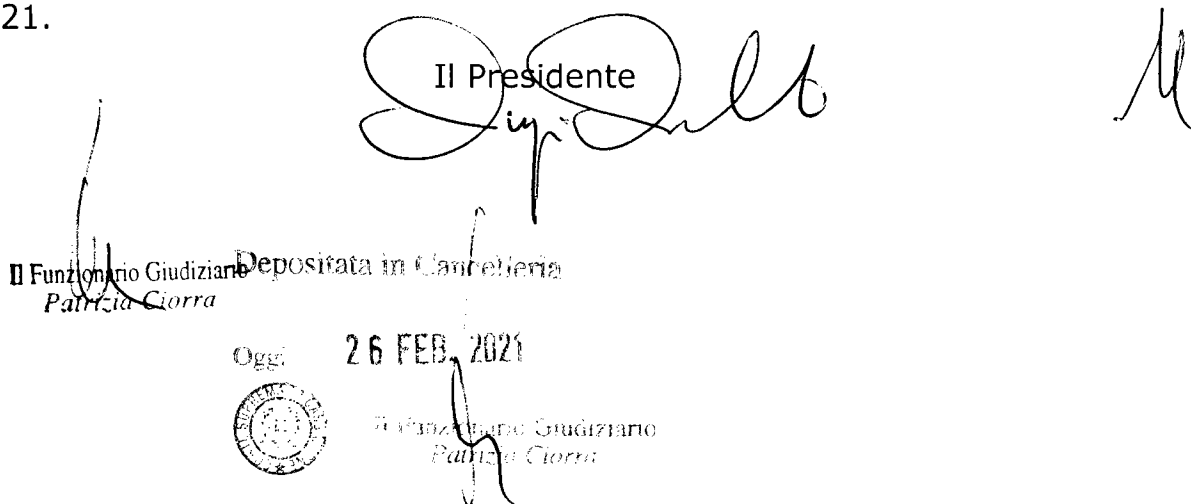 21.
Il Presidente
Il Funzionario Giudiziario
Patrizia Ciorra
Depositata in Cancelleria
Oggi 26 FEB. 2021
Il Funzionario Giudiziario
Patrizia Ciorra